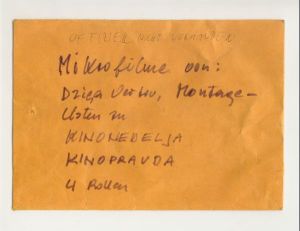 OFFIZIELL NICHT VORHANDEN
Mikrofilme von:
Dziga Vertov, Montage-
listen zu
KINONEDELJA
KINOPRAVDA
4 Rollen